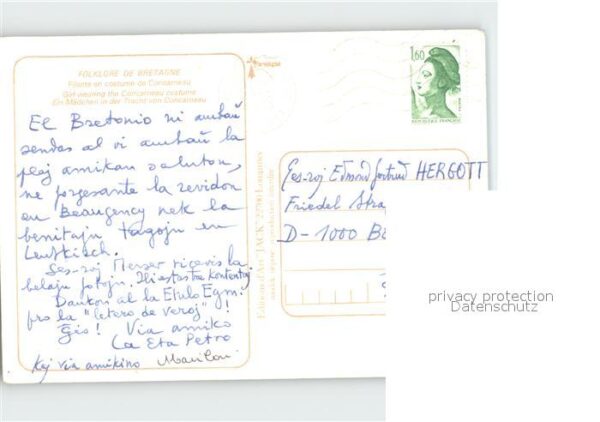 FOLKLORE DE BRETAGNE
Fillette en costume de Concarneau
Girl wearing the Concarneau costume
Ein Mädchen in der Tracht von Concarneau
El Bretonio ni ambaŭ
sendas al vi ambaŭ la
plej amikan saluton,
ne forgesante la revidon
en Beaugency nek la
benitajn tagojn en
Ges-roj Messer ricevis la
belajn fotojn. Ili estas tre kontentaj
Dankon al la Etulo Egm.
pro la "letero de veroj" !
Ĝis ! Via amiko
La Eta Petro
Kaj via amikino
Bretagne
1,60
REPUBLIQUE FRANÇAISE
Editions d'Art JACK
Ges-roj Edmond Gertrud HERGOTT
Friedel Stra
D-1000 Be
privacy protection
Datenschutz